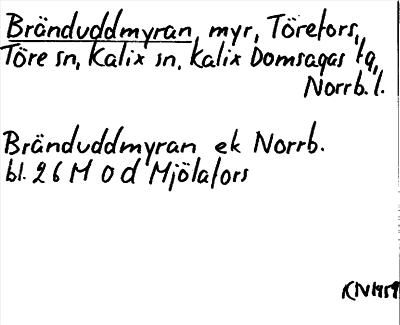 Bränduddmyran, myr, Törefors,
Töre sn, Kalix sn, Kalix Domsagas tg,
Norrb. l.
Bränduddmyran ek Norrb.
bl. 26 M 0 d Mjölafors
KN 1959